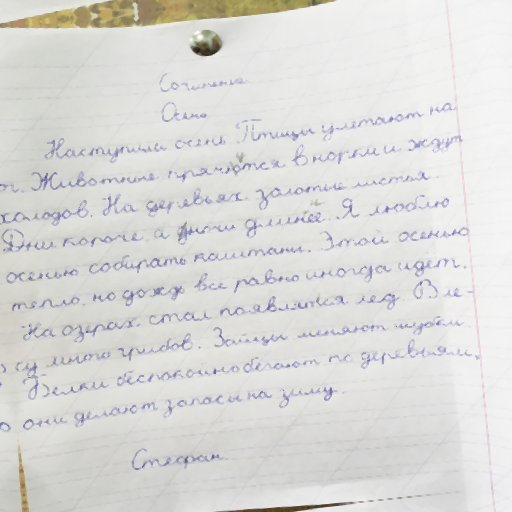 Сочинение
Осень
Наступила осень. Птицы улетают на
Животные прячются в норки и ждут
холодов. На деревьях золотые листья.
Дни короче, а ночи длинее. Я люблю
осенью собирать каштаны. Этой осенью
тепло, но дождь все равно иногда идёт.
На озерах стал появлятся лед. В ле-
су много грибов. Зайцы меняют шубки.
Белки беспокоино бегают по деревьям,
они делают запасы на зиму.
Стефан